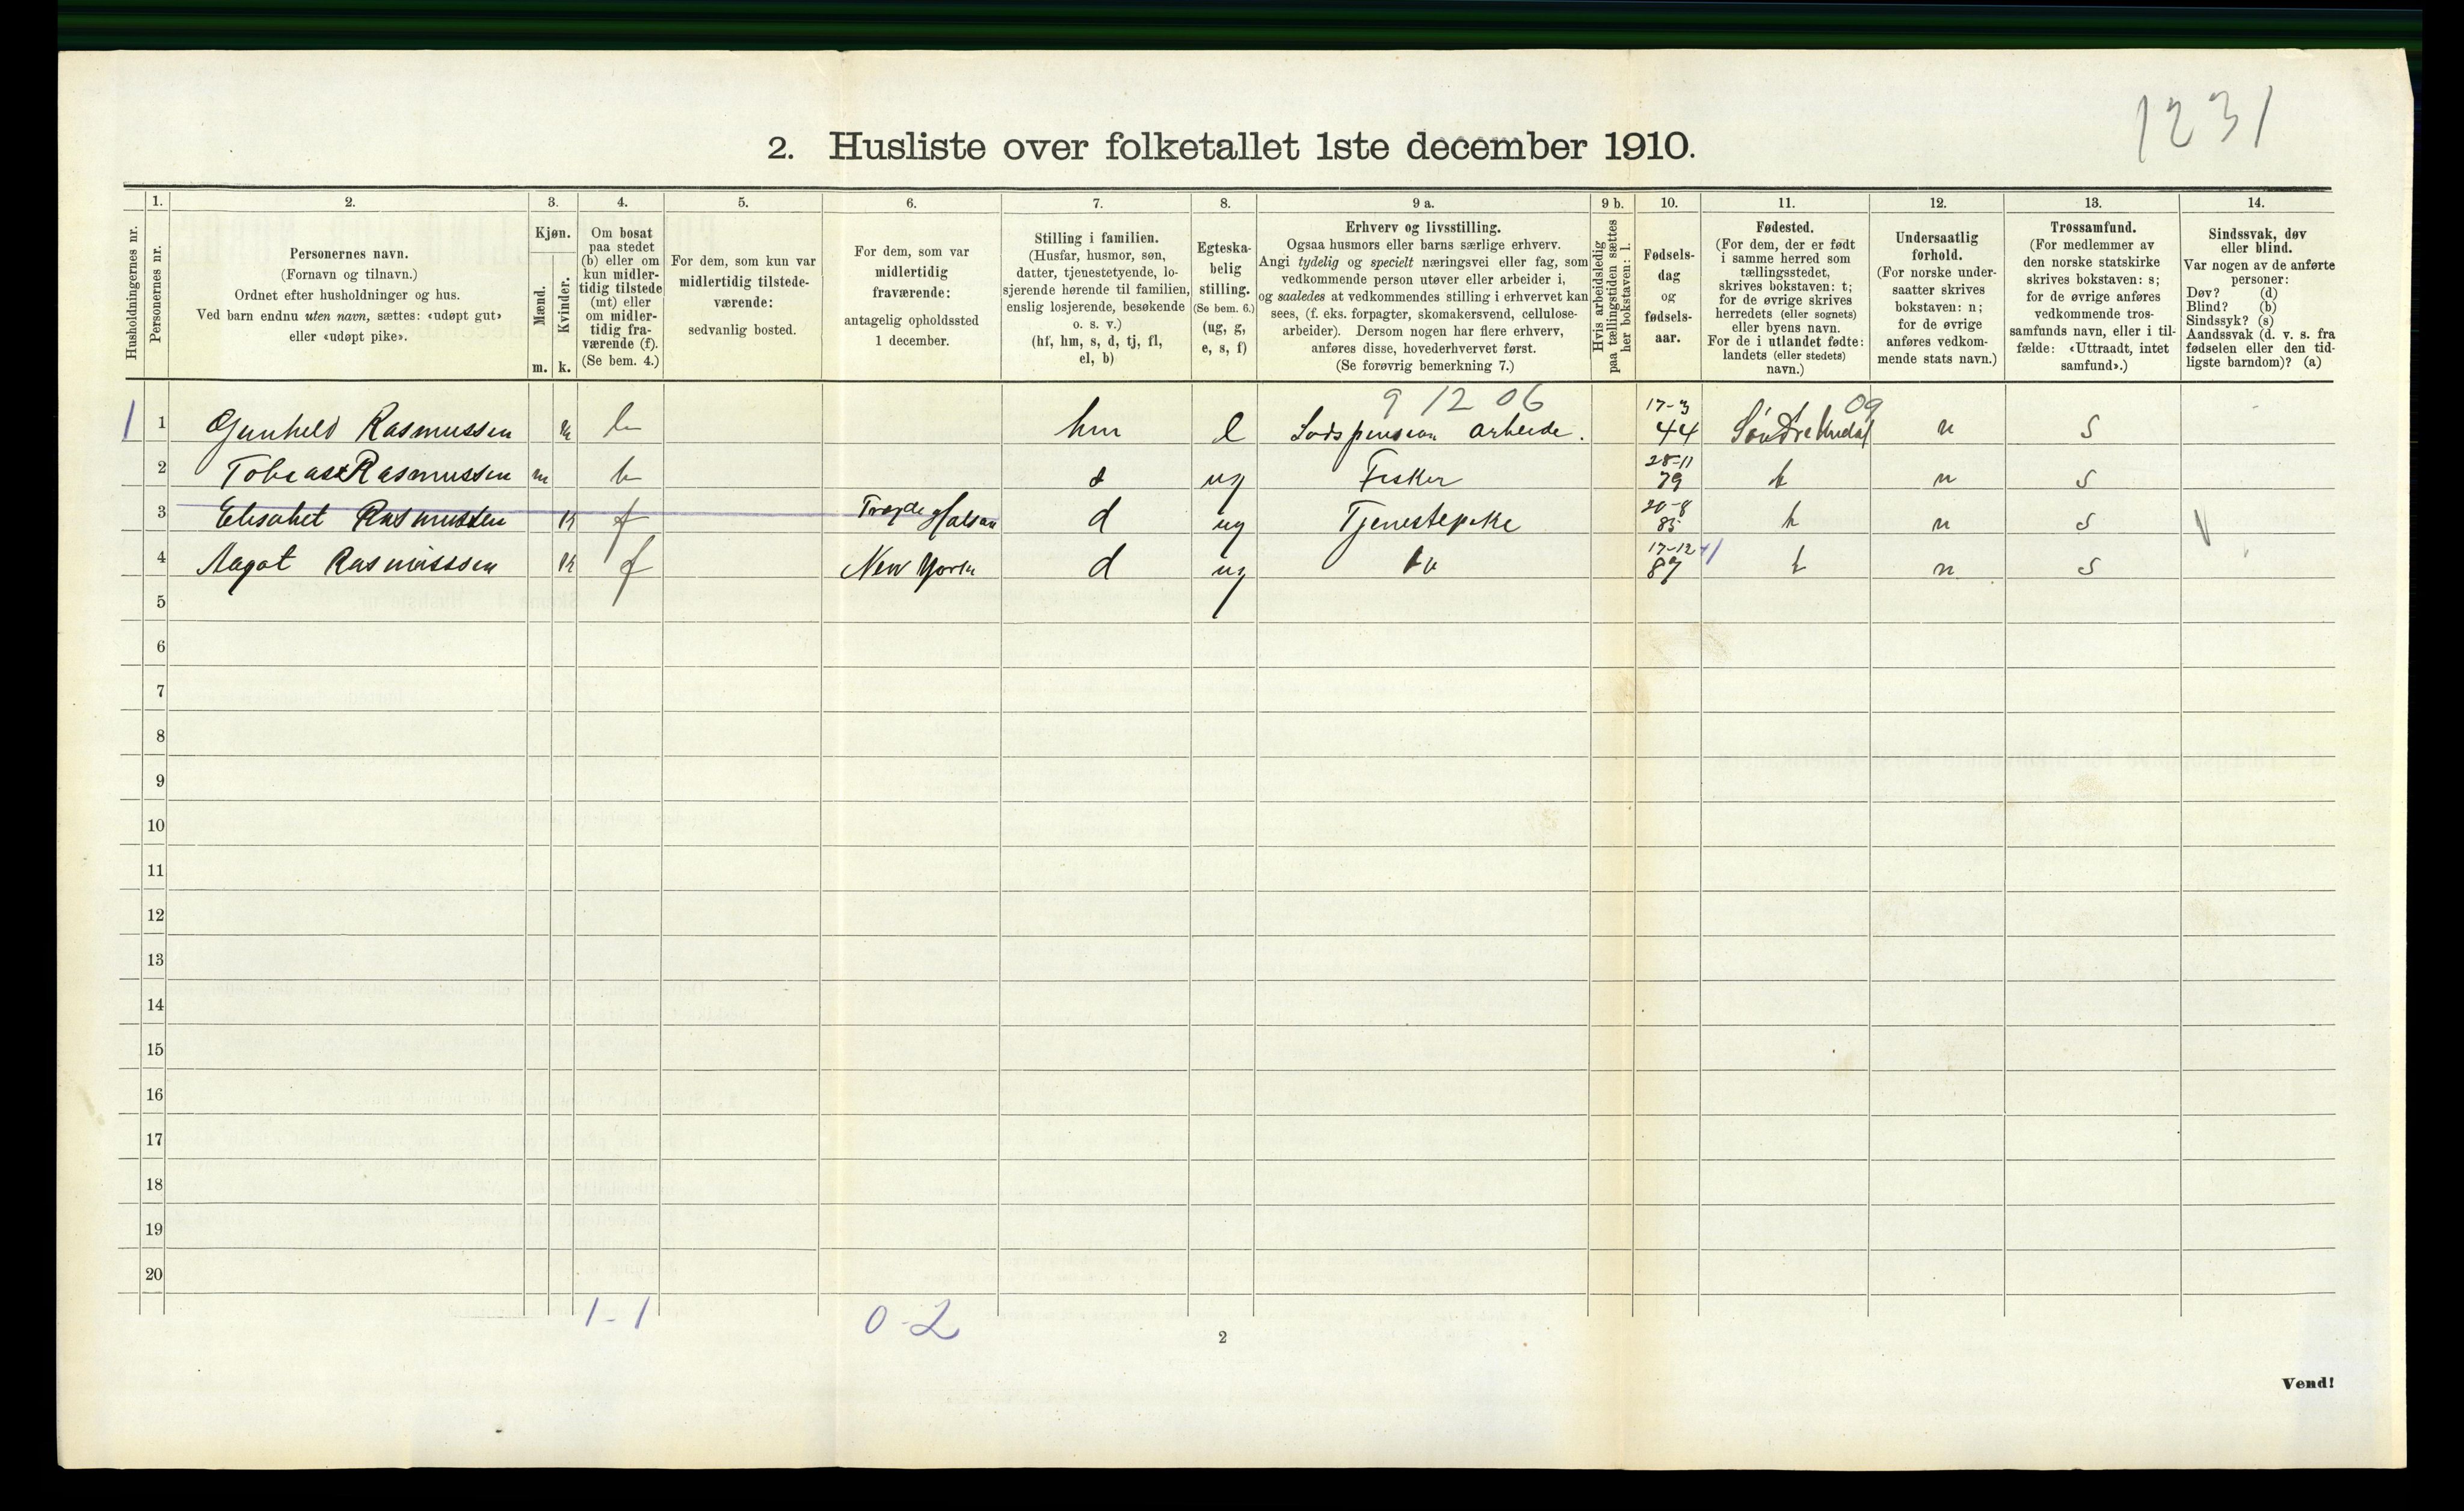 1231
2. Husliste over folketallet 1ste december 1910.
Husholdningernes nr.
1.
Personernes nr.
2.
Personernes navn.
(Fornavn og tilnavn.)
Ordnet efter husholdninger og hus.
Ved barn endnu uten navn, sættes: «udøpt gut»
eller «udøpt pike».
3.
Kjøn.
Mænd.
m.
Kvinder.
k.
4.
Om bosat
paa stedet
(b) eller om
kun midler-
tidig tilstede
(mt) eller
om midler-
tidig fra-
værende (f).
(Se bem. 4.)
5.
For dem, som kun var
midlertidig tilstede-
værende:
sedvanlig bosted.
6.
For dem, som var
midlertidig
fraværende:
antagelig opholdssted
1 december.
7.
Stilling i familien.
(Husfar, husmor, søn,
datter, tjenestetyende, lo-
sjerende hørende til familien,
enslig losjerende, besøkende
o. s. v.)
(hf, hm, s, d, tj, fl,
el, b)
8.
Egteska-
belig
stilling.
(Se bem. 6.)
(ug, g,
e, s, f)
9 a.
Erhverv og livsstilling.
Ogsaa husmors eller barns særlige erhverv.
Angi tydelig og specielt næringsvei eller fag, som
vedkommende person utøver eller arbeider i,
og saaledes at vedkommendes stilling i erhvervet kan
sees, (f. eks. forpagter, skomakersvend, cellulose-
arbeider). Dersom nogen har flere erhverv,
anføres disse, hovederhvervet først.
(Se forøvrig bemerkning 7.)
9 b.
Hvis arbeidsledig
paa tællingstiden sættes
her bokstaven: l.
10.
Fødsels-
dag
og
fødsels-
aar.
11.
Fødested.
(For dem, der er født
i samme herred som
tællingsstedet,
skrives bokstaven: t;
for de øvrige skrives
herredets (eller sognets)
eller byens navn.
For de i utlandet fødte:
landets (eller stedets)
navn.)
12.
Undersaatlig
forhold.
(For norske under-
saatter skrives
bokstaven: n;
for de øvrige
anføres vedkom-
mende stats navn.)
13.
Trossamfund.
(For medlemmer av
den norske statskirke
skrives bokstaven: s;
for de øvrige anføres
vedkommende tros-
samfunds navn, eller i til-
fælde: «Uttraadt, intet
samfund».)
14.
Sindssvak, døv
eller blind.
Var nogen av de anførte
personer:
Døv? (d)
Blind? (b)
Sindssyk? (s)
Aandssvak (d. v. s. fra
fødselen eller den tid-
ligste barndom)? (a)
9 12 06 17-3 09
1 1 Gunheld Rasmussen k b hm e Lodspension arbeide. 44 n s
2 Tobias Rasmussen m b s ug Fisker 28-11 79 t n s
3 Elisabet Rasmussen k f d ug Tjenestepike 20-8 85 t n s
4 Aagot Rasmussen k f New York d ug 17-12 87 t n s
5
6
7
8
9
10
11
12
13
14
15
16
17
18
19
20
1-1 0-2
2
Vend!